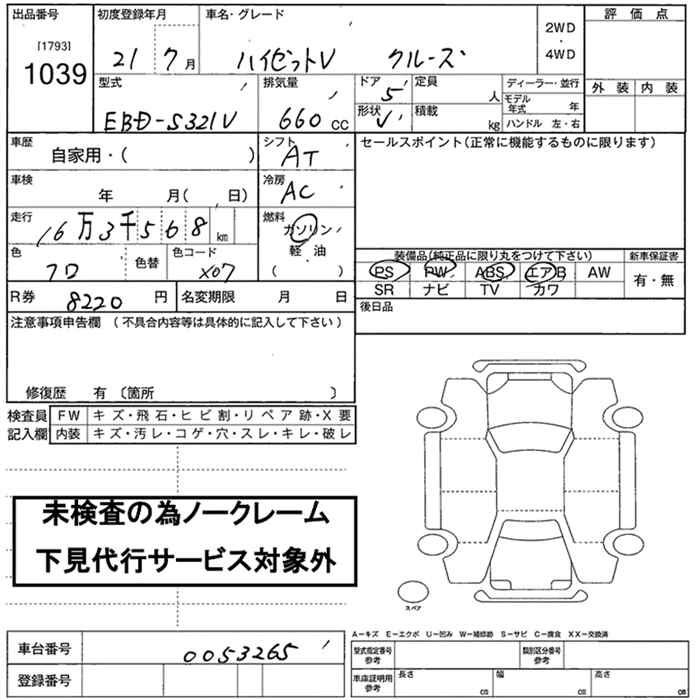 出品番号 初度登録年月 車名・グレード 2WD・4WD 評価点
[1793]
1039 21 7月 ハイゼットV クルーズ
外装 内装
型式 排気量 ドア 定員 ディーラー・並行
EBD-S321V 660cc 5 人 モデル年式 年
形状 V 積載 kg ハンドル 左・右
車歴 シフト セールスポイント(正常に機能するものに限ります)
自家用・( ) AT
車検 冷房
年 月( 日) AC
走行 燃料
16万3千568km ガソリン
軽・油
( )
色 色替 色コード
クロ X07
装備品(純正品に限り丸をつけて下さい) 新車保証書
PS PW ABS エアB AW 有・無
SR ナビ TV カワ
R券 8220円 名変期限 月 日 後日品
注意事項申告欄 (不具合内容等は具体的に記入して下さい)
修復歴 有 〔箇所 〕
検査員 FW キズ・飛石・ヒビ割・リペア跡・X要
記入欄 内装 キズ・汚レ・コゲ・穴・スレ・キレ・破レ
未検査の為ノークレーム
下見代行サービス対象外
スペア
A−キズ E−エクボ U−凹み W−補修跡 S−サビ C−腐食 XX−交換済
車台番号 0053265 型式指定番号 参考 類別区分番号 参考
登録番号 車庫証明用 参考 長さ cm 幅 cm 高さ cm